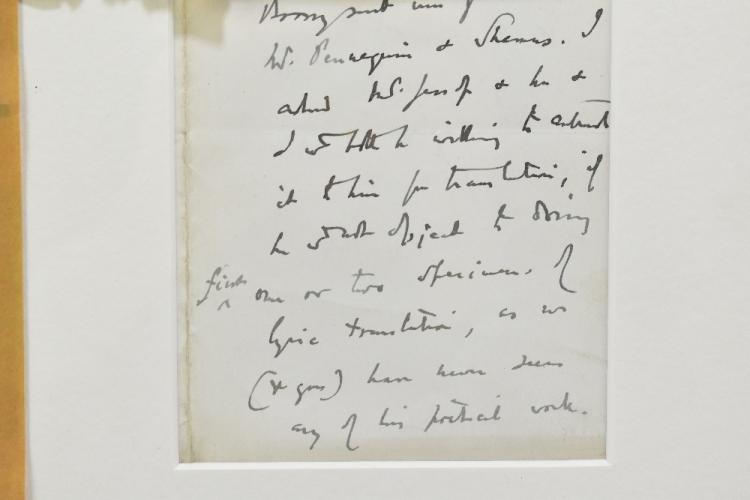 Mr. Pennequin & Shamus. I
asked Mr. Jessop & he &
I wd. both be willing to entrust
it to him for translation, if
he wd. not object to doing
first
one or two specimens of
lyric translation, as we
(& you) have never seen
any of his poetical work.